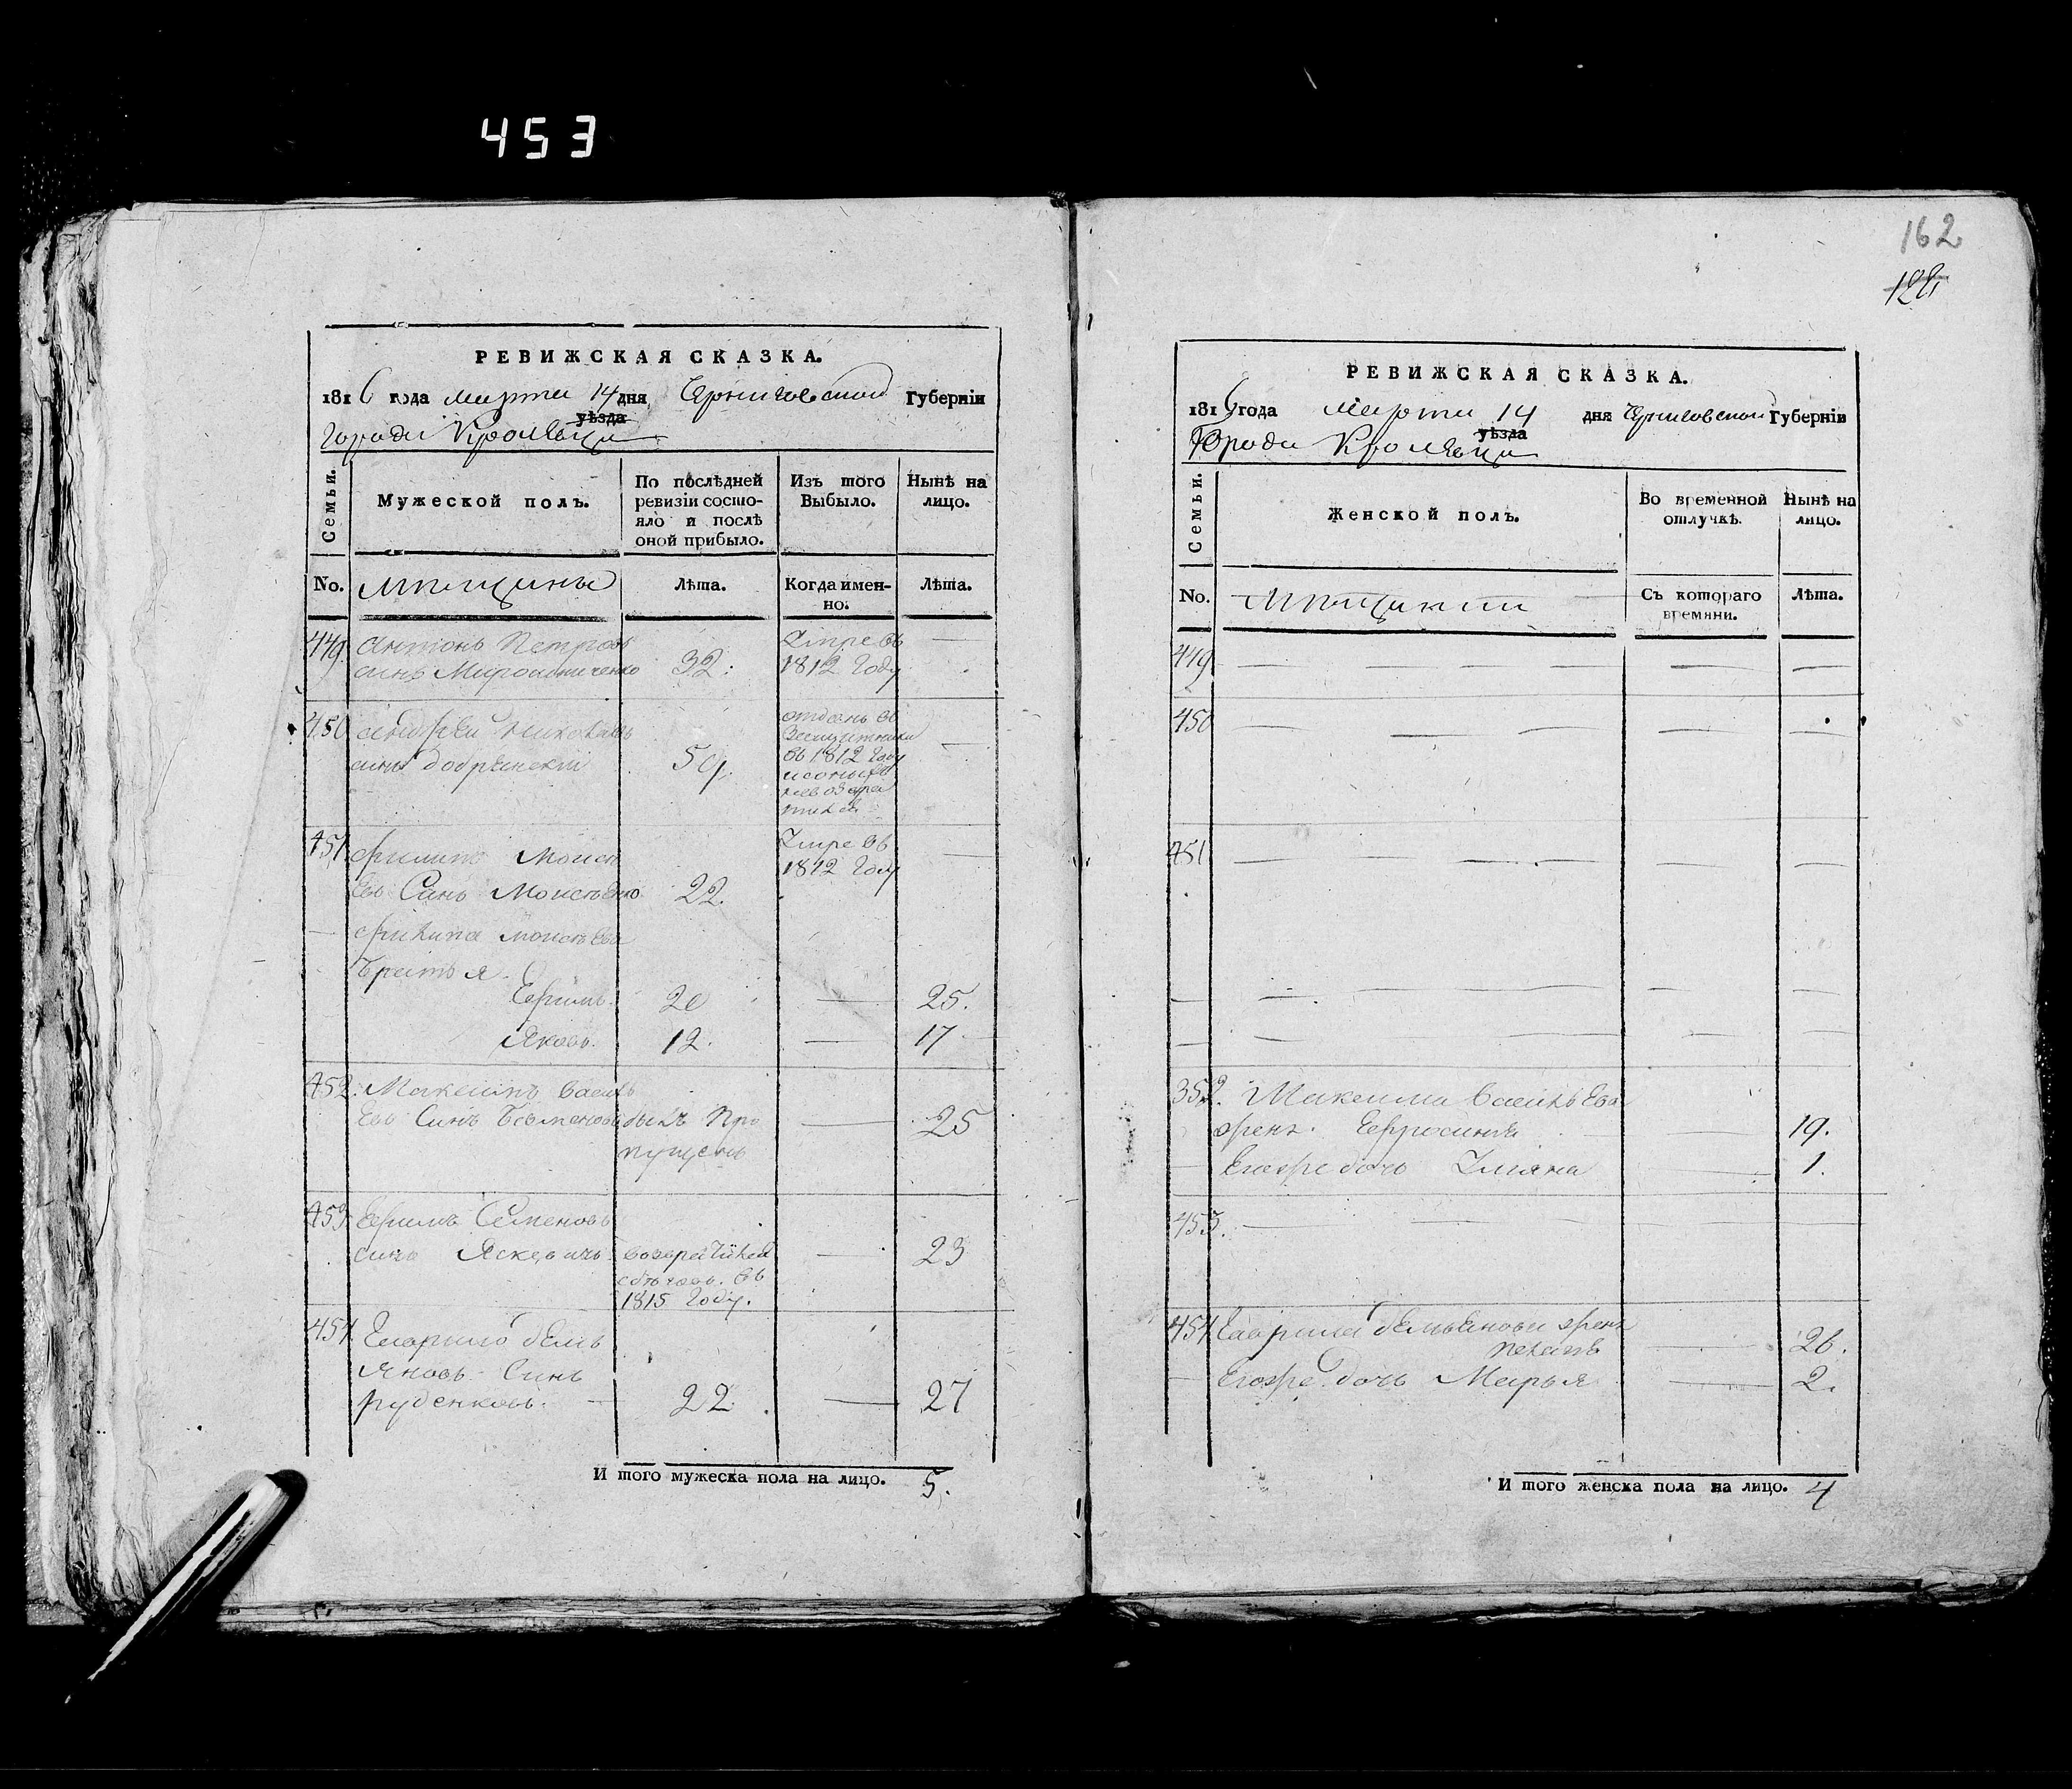 453
РЕВИЖСКАЯ СКАЗКА.
1816 года марта 14 дня Черниговской Губернїи
города Кролевца уѣзда
Семьи.
Мужеской полъ.
По послѣдней ревизїи состояло и послѣ оной прибыло.
Изъ того Выбыло.
Нынѣ на лицо.
No.
мѣщаны
Лѣта.
Когда именно.
Лѣта.
449 Антонъ Петровъ Умре въ —
сынъ Мирошниченко 32. 1812 году
450 Андрей отданъ въ
сынъ 59.
въ 1812 году —
451 Филипъ Моисѣ Умре въ —
евъ Сынъ Моисѣенко 22. 1812 году
— Филипа Моисѣева
братья
Ефимъ. 20 — 25.
Яковъ. 12. — 17
452. Максимъ Василь
евъ Сынъ былъ про — 25
пущенъ
453 Ефимъ Семеновъ
сынъ Яскевичъ возвратился — 23
въ
1815 году.
454 Гаврило Демь
яновъ Сынъ
руденковъ. — 22. — 27
И того мужеска пола на лицо. 5.
162
РЕВИЖСКАЯ СКАЗКА.
1816 года Марта 14 дня Черниговской Губернїи
Города Кролевца уѣзда
Семьи.
Женской полъ.
Во временной отлучкѣ.
Нынѣ на лицо.
No.
Мѣщанки
Съ котораго времяни.
Лѣта.
449 — — —
450 — — —
451 — — —
— — — —
— — — —
352. Максима Васильева
жена Ефросинія — 19.
— Егоже дочь Уляна — 1.
453. —
454 Гаврила Демьянова жена
— 26.
— Егоже дочь Марья — 2.
И того женска пола на лицо. 4